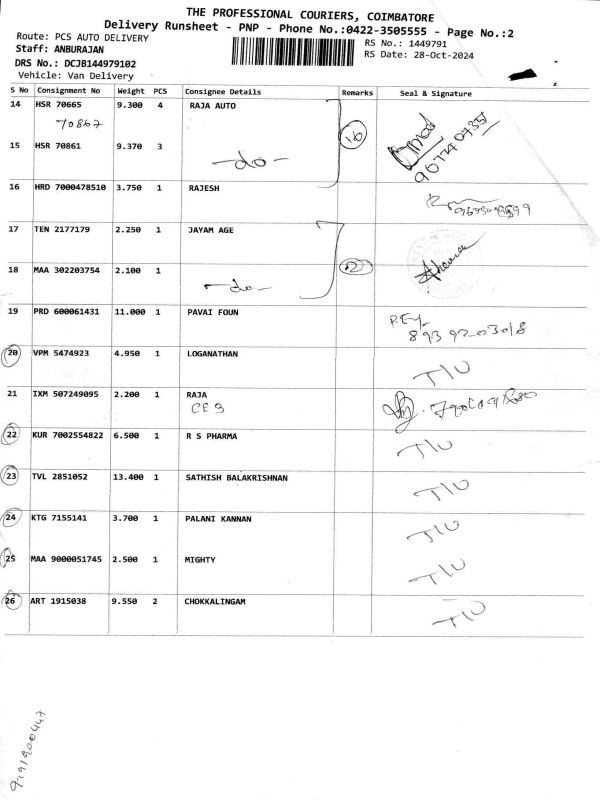 THE PROFESSIONAL COURIERS, COIMBATORE
Delivery Runsheet - PNP - Phone No.:0422-3505555 - Page No.:2
Route: PCS AUTO DELIVERY
RS No.: 1449791
Staff: ANBURAJAN
RS Date: 28-Oct-2024
DRS No.: DCJB144979102
Vehicle: Van Delivery
S No Consignment No Weight PCS Consignee Details Remarks Seal & Signature
14 HSR 70665 9.300 4 RAJA AUTO
70867
15 HSR 70861 9.370 3
-do-
16 HRD 7000478510 3.750 1 RAJESH
17 TEN 2177179 2.250 1 JAYAM AGE
18 MAA 302203754 2.100 1
-do-
19 PRD 600061431 11.000 1 PAVAI FOUN
8939203018
20 VPM 5474923 4.950 1 LOGANATHAN T/U
21 IXM 507249095 2.200 1 RAJA
22 KUR 7002554822 6.500 1 R S PHARMA T/U
23 TVL 2851052 13.400 1 SATHISH BALAKRISHNAN T/U
24 KTG 7155141 3.700 1 PALANI KANNAN T/U
25 MAA 9000051745 2.500 1 MIGHTY T/U
26 ART 1915038 9.550 2 CHOKKALINGAM T/U